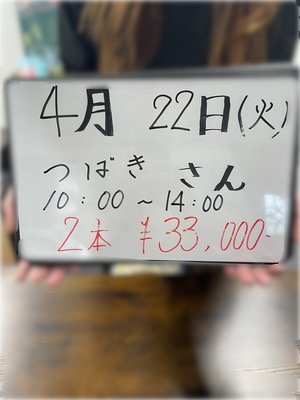 4月 22日(火)
つばき さん
10:00~14:00
2本 ¥33,000-